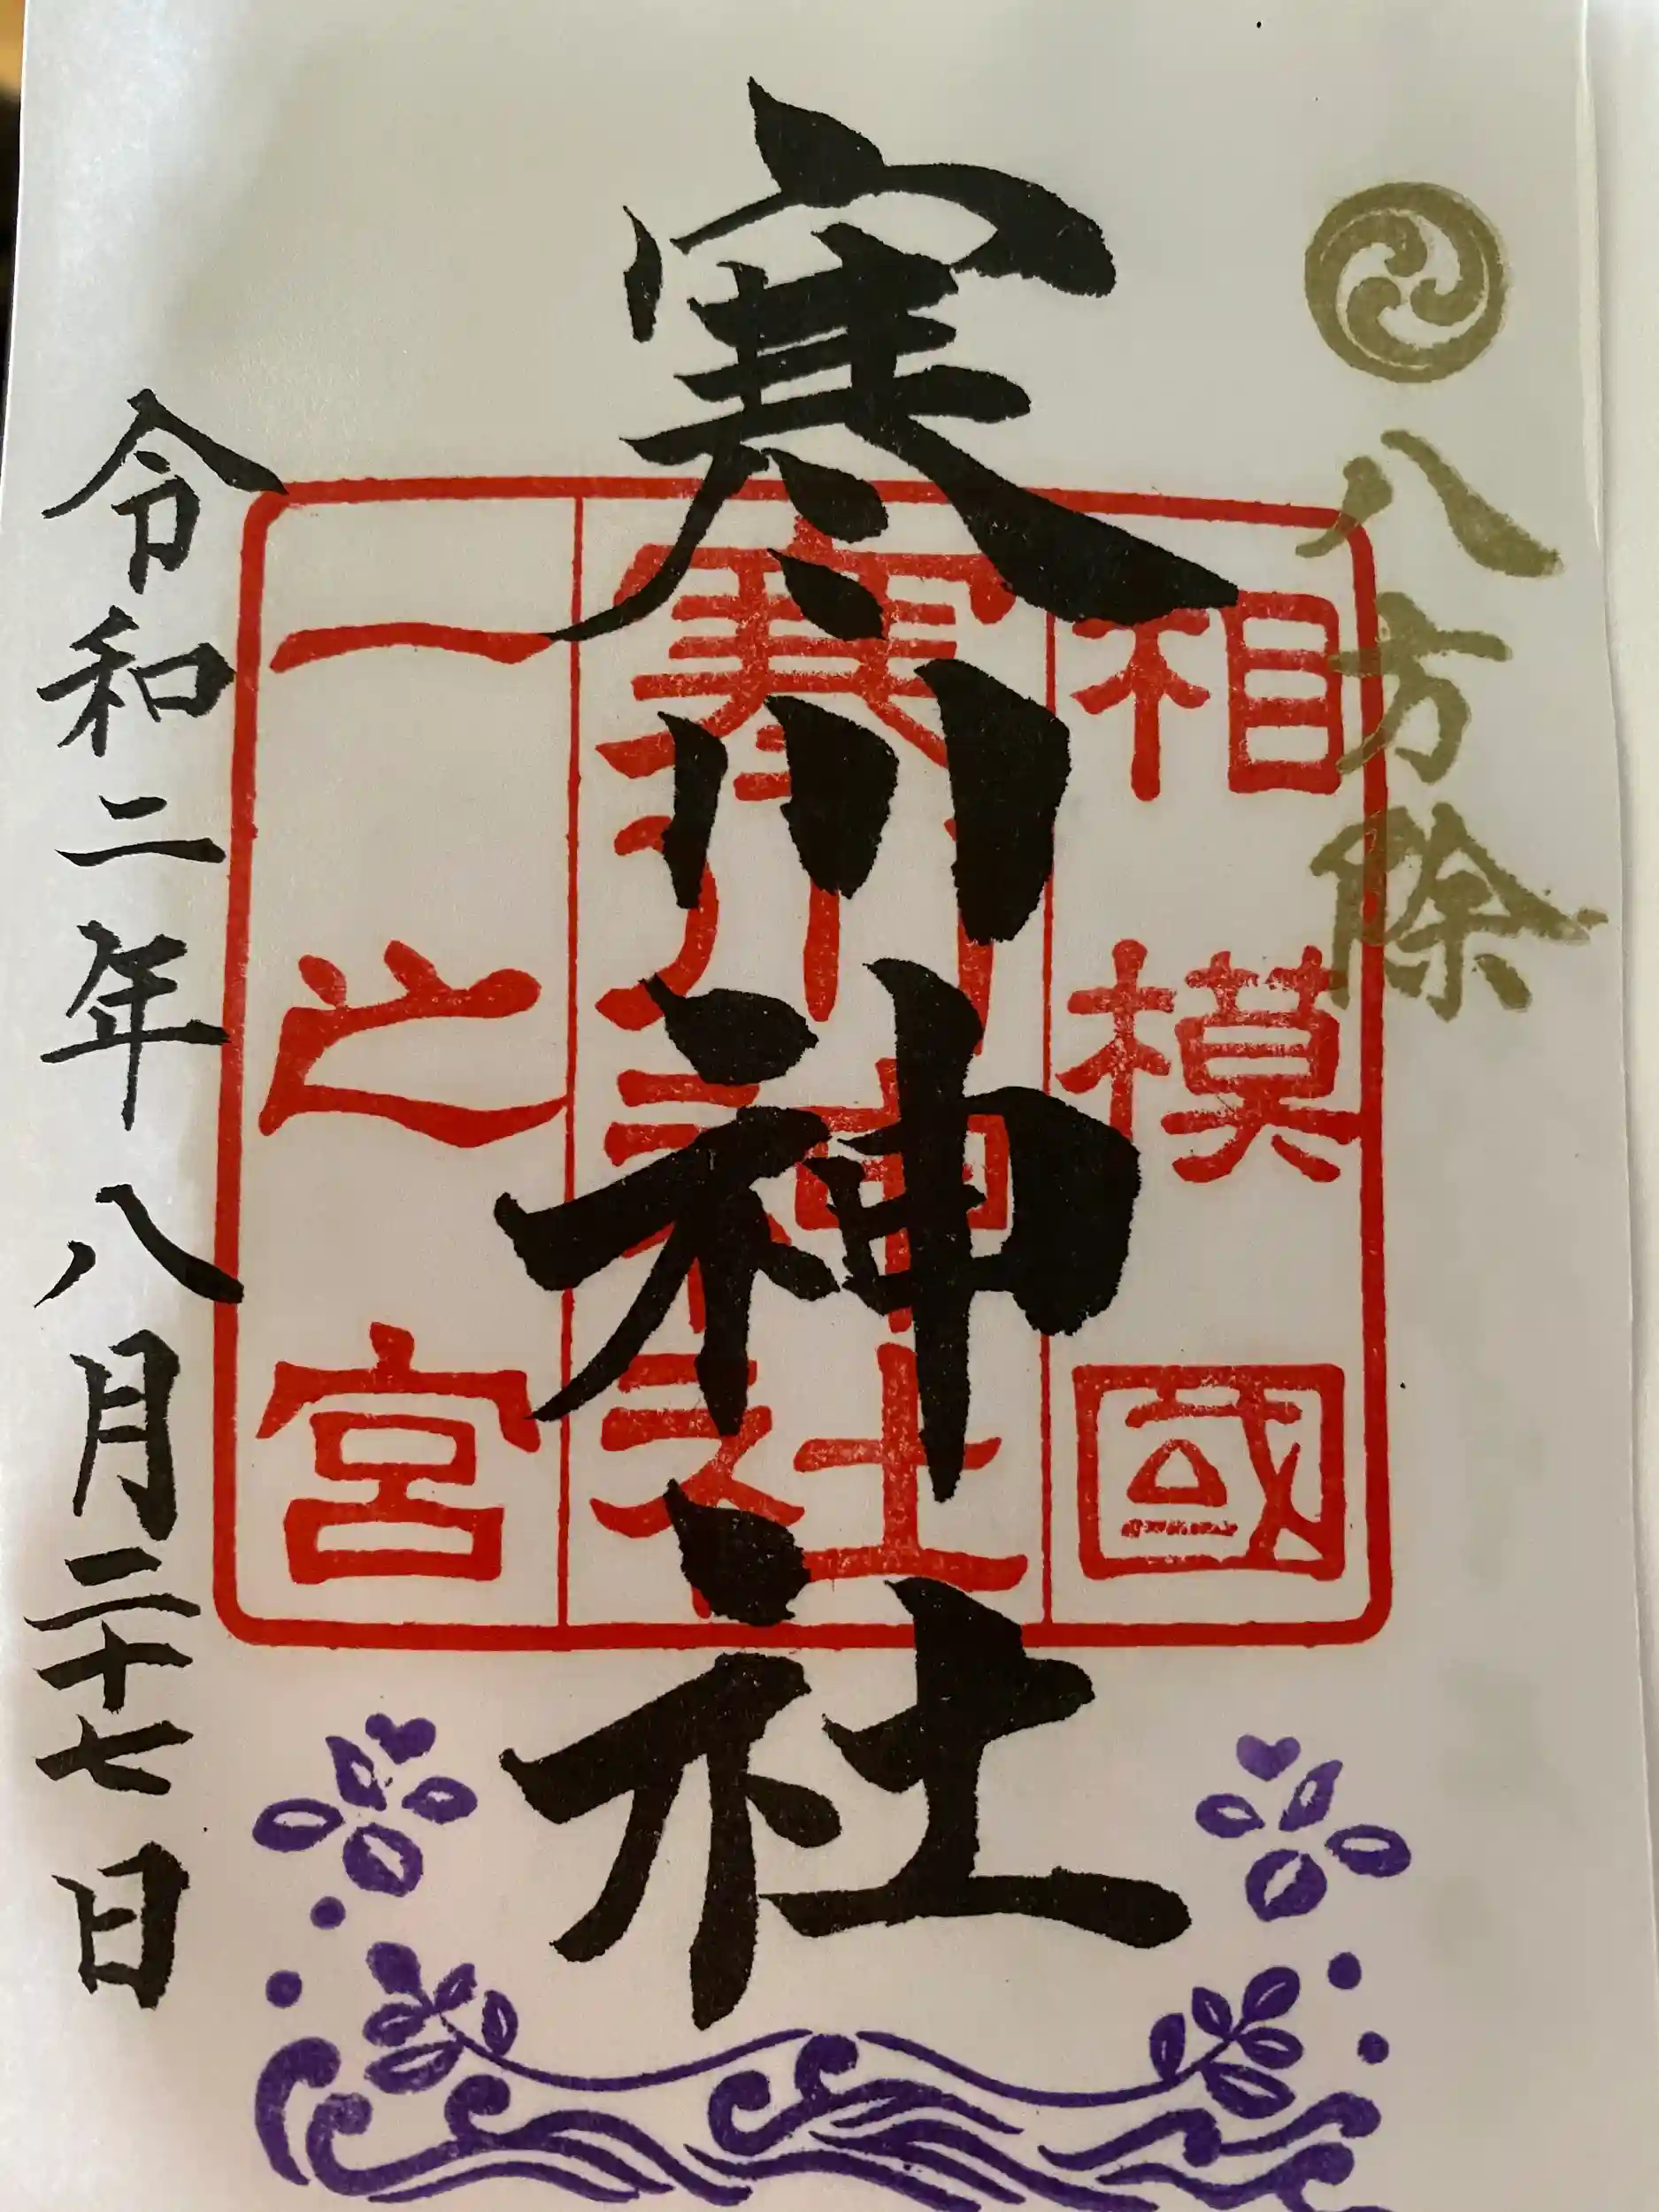 八方除
相模國
寒川神社
一之宮
寒川神社
令和二年八月二十七日